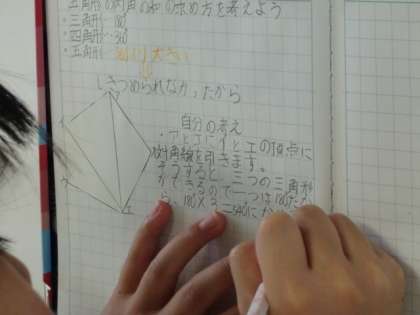 五角形の内角の和の求め方を考えよう
・三角形…180°
・四角形…360°
・五角形
より大きい
しきつめられなかったから
ア
エ
自分の考え
・アとエにイとエの頂点に
対角線を引きます。
そうすると、三つの三角形
ができるので一つは180°だか
ら、180×3=540に